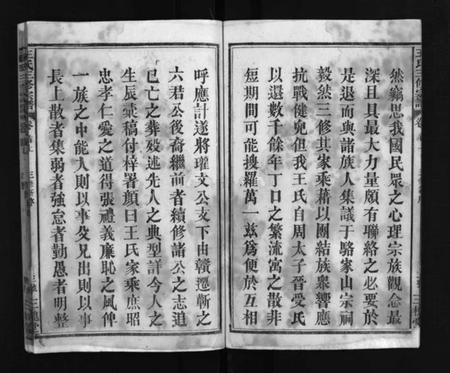 然竊思我國民眾之心理宗族觀念最
深且具最大力量頗有聯絡之必要於
是退而與諸族人集議于駱家山宗祠
毅然三修其家乘藉以團結族衆響應
抗戰健兒但我王氏自周太子晉受氏
以還數千餘年丁口之繁流寓之散非
短期間可能搜羅萬一兹爲便於互相
呼應計遂將瓘文公支下由贛遷新之
六君公後裔繼前者續修諸公之志追
已亡之彝殁述先人之典型詳今人之
生辰彙稿付梓署顏曰王氏家乘庶昭
忠孝仁愛之道得張禮義廉恥之風俾
一族之中能人則以事父兄出則以事
長上散者集弱者強怠者勤愚者明整
王氏三修宗譜